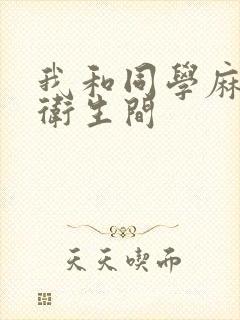 我和同學麻
衛生間
天天喫而